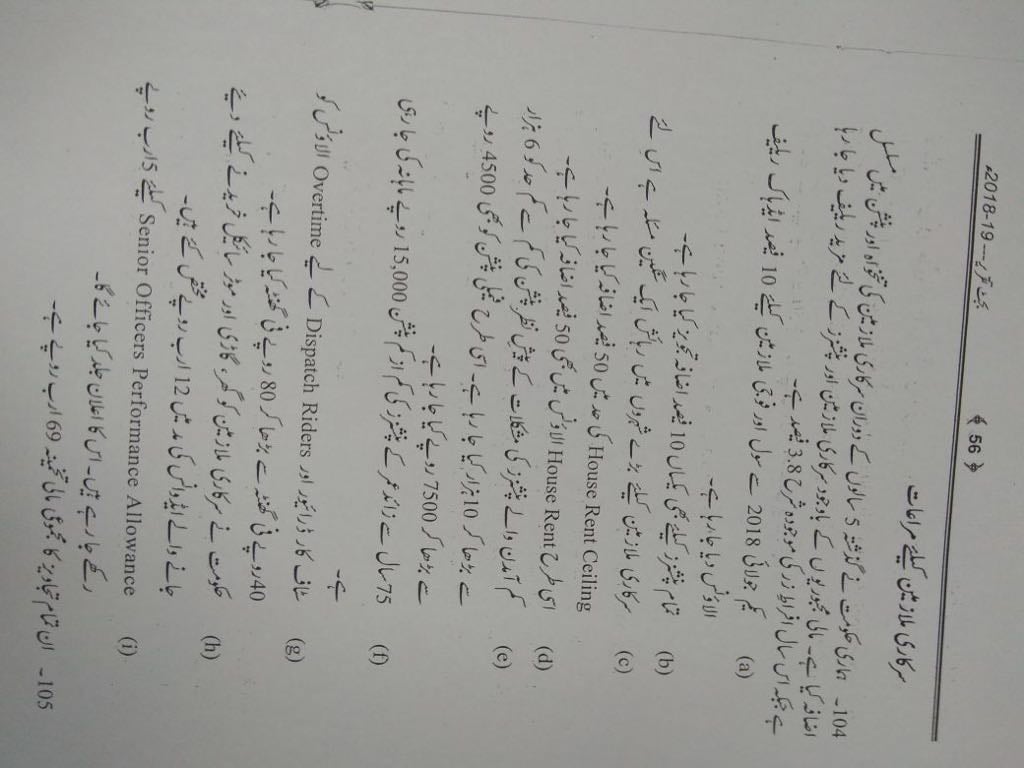 بجٹ تقریر—2018-19ء
﴾ 56 ﴿
سرکاری ملازمین کیلئے مراعات
104- ہماری حکومت نے گزشتہ 5 سالوں کے دوران سرکاری ملازمین کی تنخواہ اور پنشن میں مسلسل
اضافہ کیا ہے۔ مالی مجبوریوں کے باوجود سرکاری ملازمین اور پنشنرز کے لئے مزید ریلیف دیا جا رہا
ہے جبکہ اس سال افراطِ زر کی موجودہ شرح 3.8 فیصد ہے۔
(a) یکم جولائی 2018 سے سول اور فوجی ملازمین کیلئے 10 فیصد ایڈہاک ریلیف
الاؤنس دیا جا رہا ہے۔
(b) تمام پنشنرز کیلئے بھی یکساں 10 فیصد اضافہ تجویز کیا جا رہا ہے۔
(c) سرکاری ملازمین کیلئے بڑے شہروں میں رہائش ایک سنگین مسئلہ ہے اس لئے
House Rent Ceiling کی حد میں 50 فیصد اضافہ کیا جا رہا ہے۔
(d) اسی طرح House Rent الاؤنس میں بھی 50 فیصد اضافہ کیا جا رہا ہے۔
(e) کم آمدن والے پنشنرز کی مشکلات کے پیش نظر پنشن کی کم سے کم حد کو 6 ہزار
سے بڑھا کر 10 ہزار کیا جا رہا ہے۔ اسی طرح فیملی پنشن کو بھی 4500 روپے
سے بڑھا کر 7500 روپے کیا جا رہا ہے۔
(f) 75 سال سے زائد عمر کے پنشنرز کی کم از کم پنشن 15,000 روپے ماہانہ کی جا رہی
ہے۔
(g) سٹاف کار ڈرائیور اور Dispatch Riders کے لئے Overtime الاؤنس کو
40 روپے فی گھنٹہ سے بڑھا کر 80 روپے فی گھنٹہ کیا جا رہا ہے۔
(h) حکومت نے سرکاری ملازمین کو گھر، گاڑی اور موٹر سائیکل خریدنے کیلئے دیئے
جانے والے ایڈوانس کی مد میں 12 ارب روپے مختص کئے ہیں۔
(i) Senior Officers Performance Allowance کیلئے 5 ارب روپے
رکھے جا رہے ہیں۔ اس کا اعلان جلد کیا جائے گا۔
105- ان تمام تجاویز کا مجموعی مالی تخمینہ 69 ارب روپے ہے۔